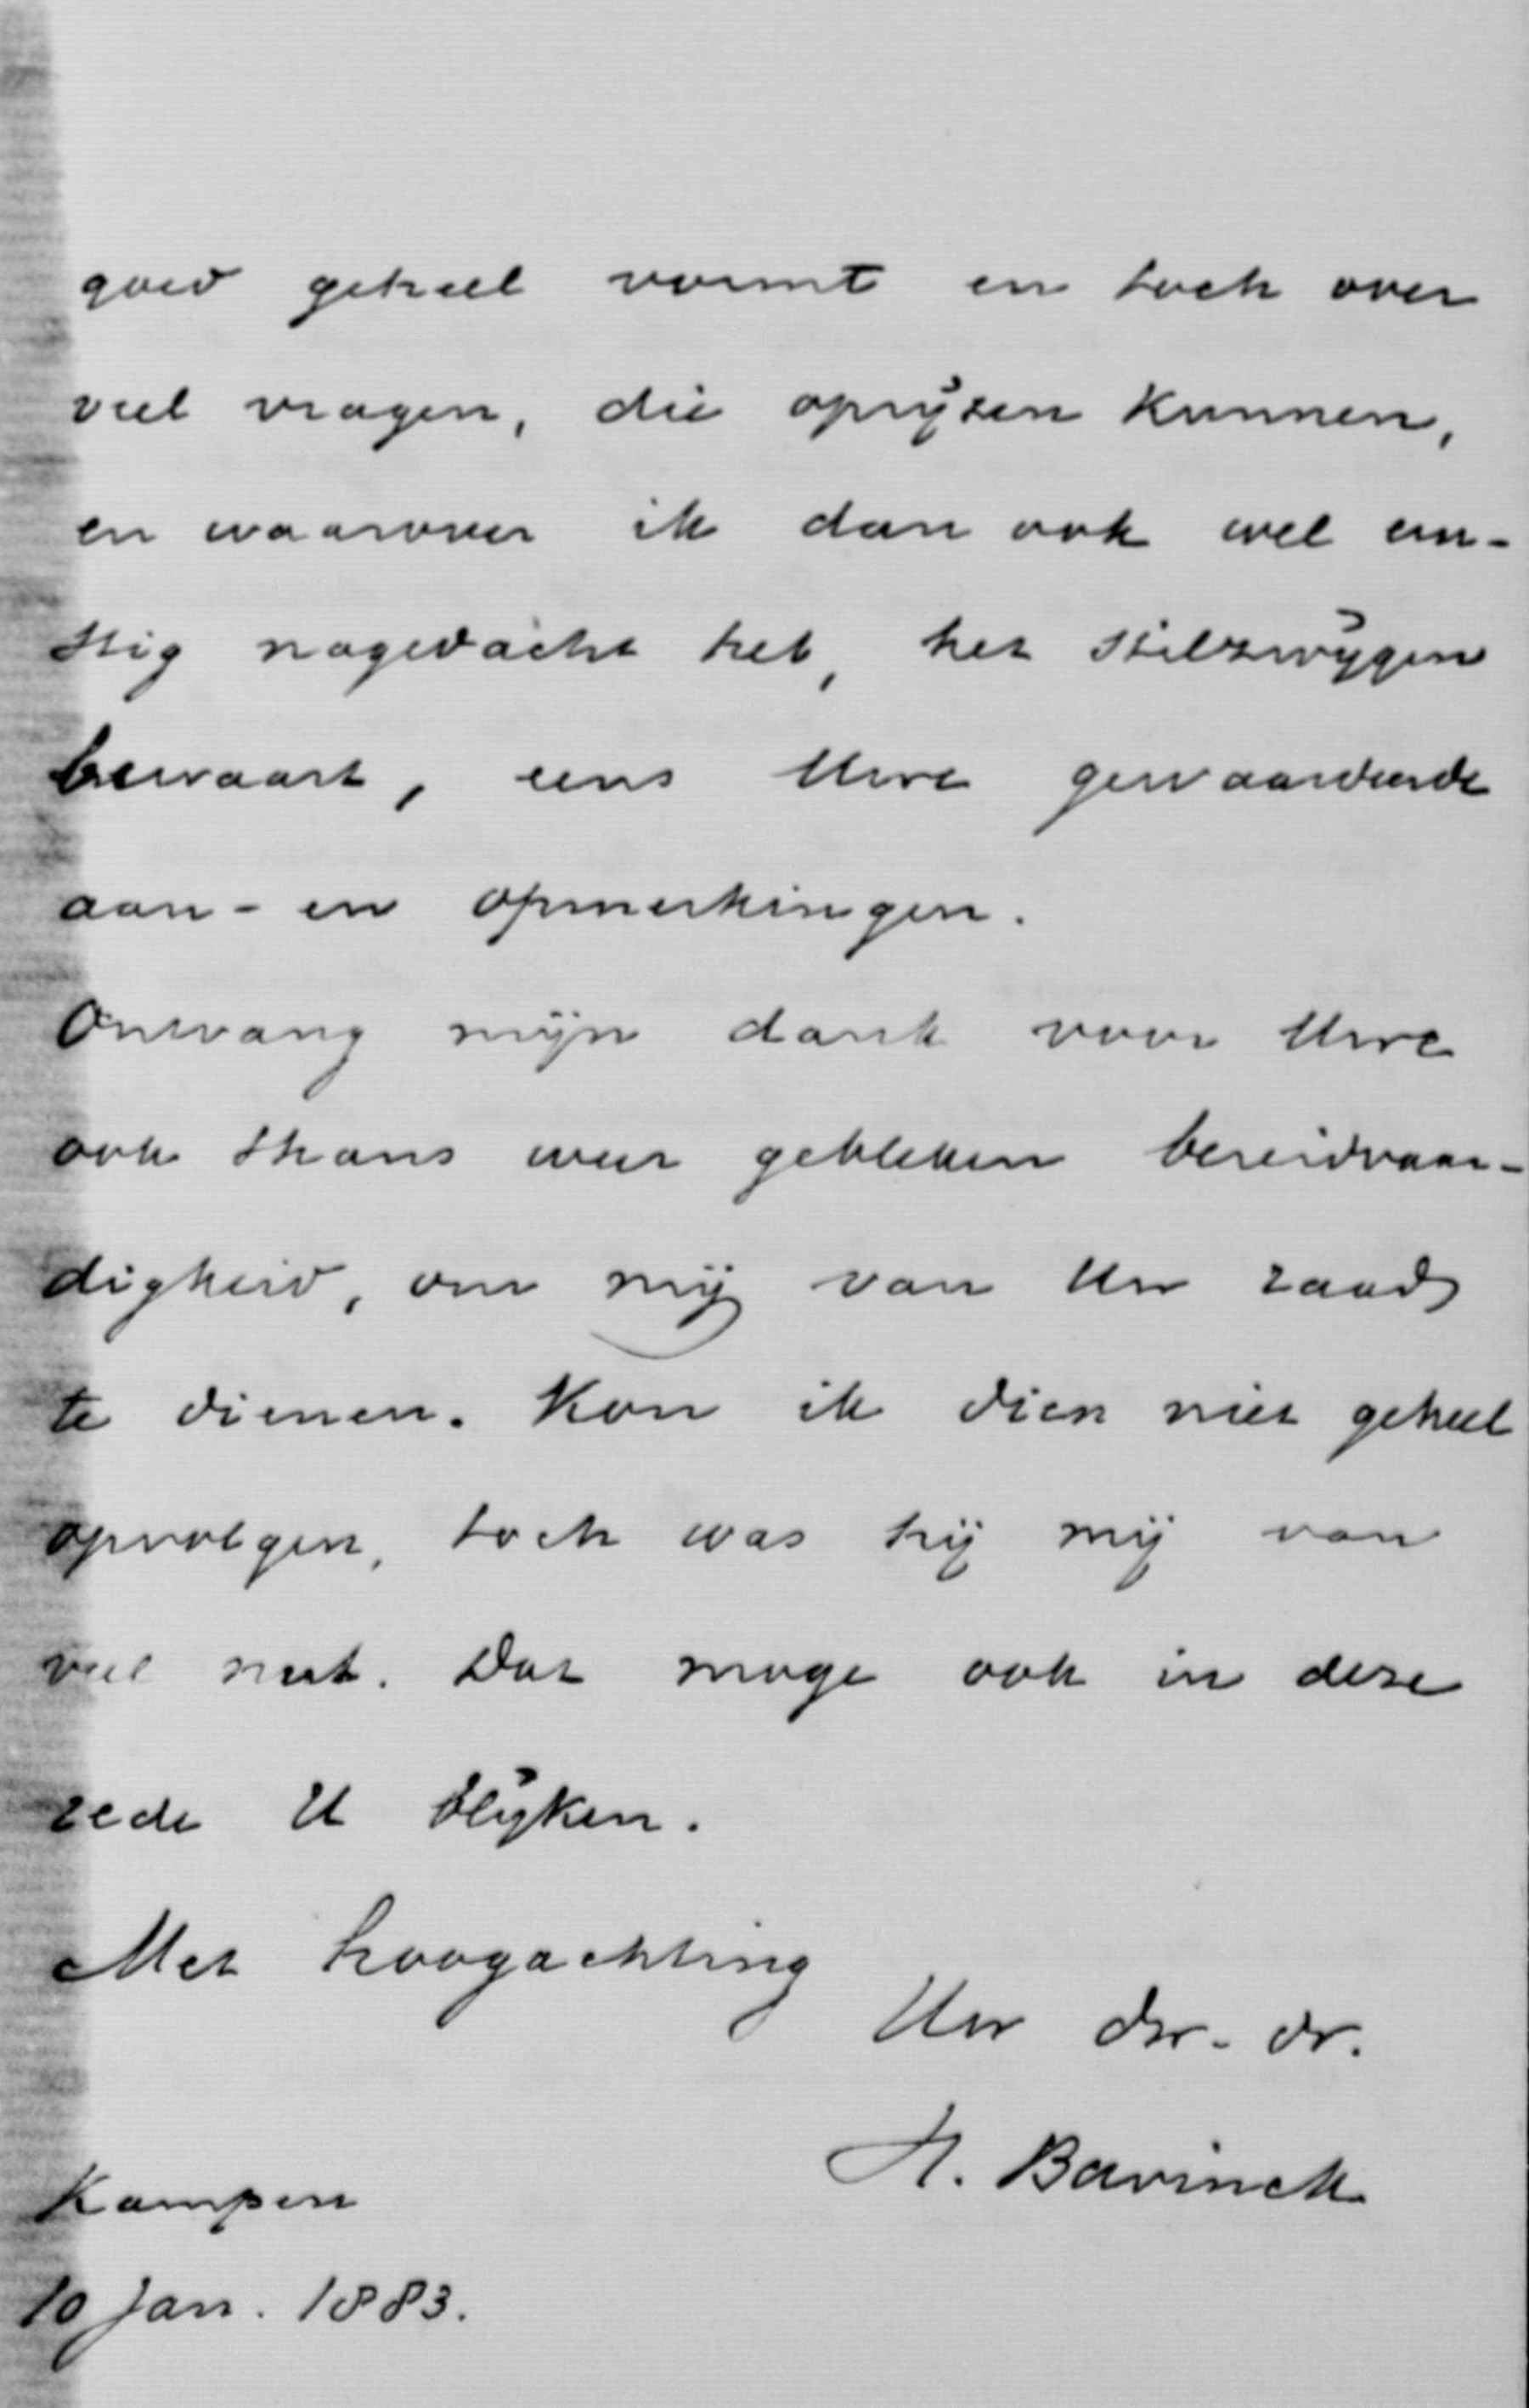 goed geheel vormt en toch over
veel vragen, die oprijzen kunnen,
en waarover ik dan ook wel ern-
stig nagedacht heb, het stilzwijgen
bewaart, eens Uwe gewaardeerde
aan- en opmerkingen.
Ontvang mijn dank voor Uwe
ook thans weer gebleken bereidvaar-
digheid, om mij van Uw raad
te dienen. Kon ik dien niet geheel
opvolgen, toch was hij mij van
veel nut. Dat moge ook in deze
rede U blijken.
Met hoogachting
Uw dw. dr.
H. Bavinck
Kampen
10 Jan. 1883.